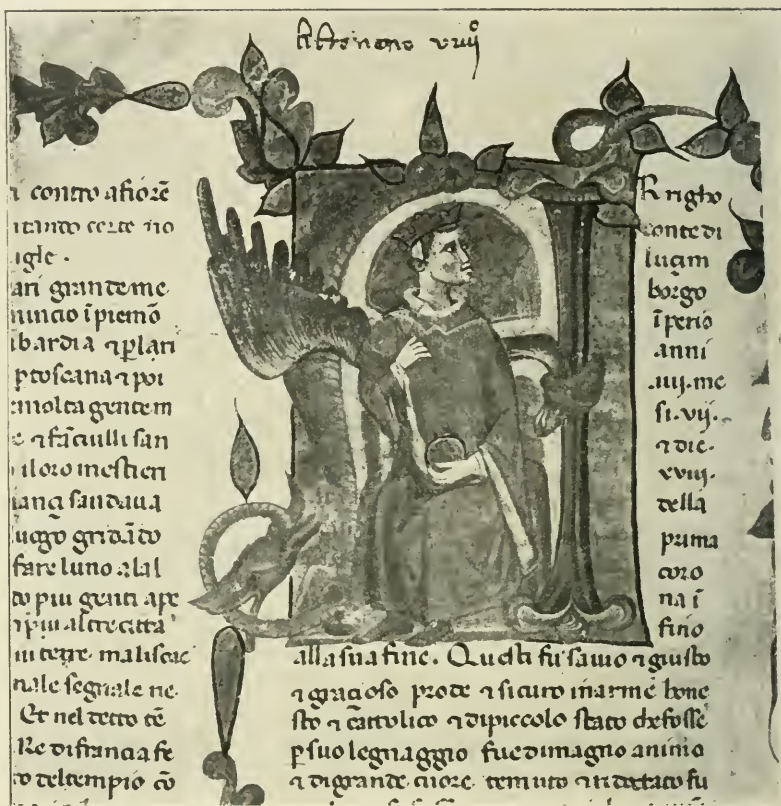 contro a fiorē
tando certe no
igle .
ari grande me
nuncio ī piemō
bardia ⁊ ꝑlari
ꝑ toscana ⁊ poi
molta gente m
e ⁊ fāciulli san
i loro mestieri
sandaua
uogo gridādo
fare luno alal
to piu genti ape
⁊ piu altre citta
terre . ma
nale segnale ne .
Et nel detto tē
Re di francia fe
deltempio cō
Rrigho
conte di
luçim
borgo
īperio
anni
.iiij. me
si . vij .
⁊ die .
xviij .
della
prima
coro
na ī
fino
alla sua fine . Questi fu sauio ⁊ giusto
⁊ gracioso prode ⁊ sicuro inarme hone
sto ⁊ cattolico ⁊ dipiccolo stato che fosse
ꝑ suo legnaggio fue dimagno animo
⁊ digrande cuore temuto ⁊ fu